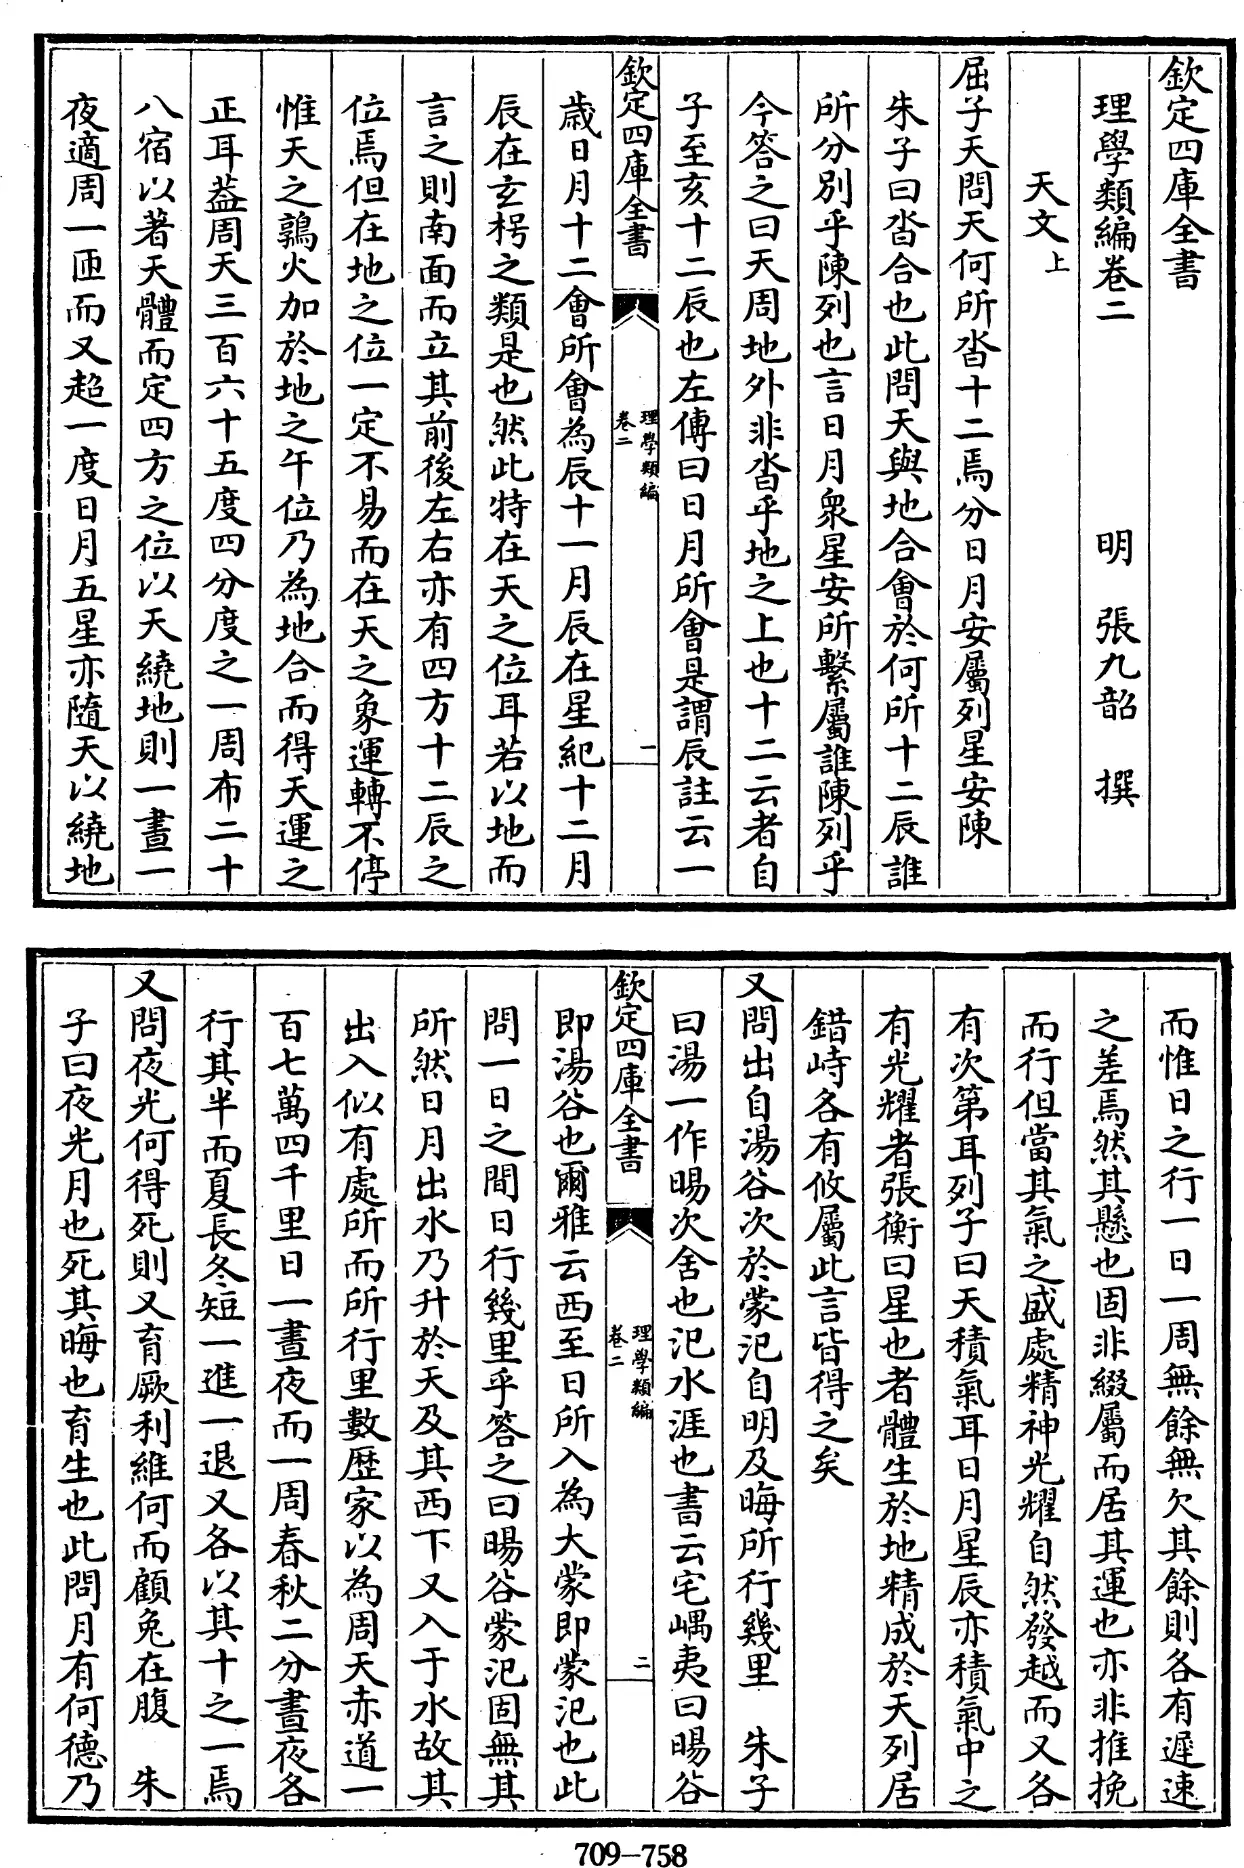 欽定四庫全書
理學類編卷二
明 張九韶 撰
天文上
屈子天問天何所沓十二焉分日月安屬列星安陳
朱子曰沓合也此問天與地合會於何所十二辰誰
所分別乎陳列也言日月衆星安所繫屬誰陳列乎
今答之曰天周地外非沓乎地之上也十二云者自
子至亥十二辰也左傳曰日月所會是謂辰註云一
欽定四庫全書
理學類編
卷二
一
歳日月十二會所會為辰十一月辰在星紀十二月
辰在玄枵之類是也然此特在天之位耳若以地而
言之則南面而立其前後左右亦有四方十二辰之
位焉但在地之位一定不易而在天之象運轉不停
惟天之鶉火加於地之午位乃為地合而得天運之
正耳葢周天三百六十五度四分度之一周布二十
八宿以著天體而定四方之位以天繞地則一晝一
夜適周一匝而又超一度日月五星亦隨天以繞地
而惟日之行一日一周無餘無欠其餘則各有遲速
之差焉然其懸也固非綴屬而居其運也亦非推挽
而行但當其氣之盛處精神光耀自然發越而又各
有次第耳列子曰天積氣耳日月星辰亦積氣中之
有光耀者張衡曰星也者體生於地精成於天列居
錯峙各有攸屬此言皆得之矣
又問出自湯谷次於蒙汜自明及晦所行幾里 朱子
曰湯一作暘次舍也汜水涯也書云宅嵎夷曰暘谷
欽定四庫全書
理學類編
卷二
二
即湯谷也爾雅云西至日所入為大蒙即蒙汜也此
問一日之間日行幾里乎答之曰暘谷蒙汜固無其
所然日月出水乃升於天及其西下又入于水故其
出入似有處所而所行里數歷家以為周天赤道一
百七萬四千里日一晝夜而一周春秋二分晝夜各
行其半而夏長冬短一進一退又各以其十之一焉
又問夜光何得死則又育厥利維何而顧兔在腹 朱
子曰夜光月也死其晦也育生也此問月有何德乃
709-758